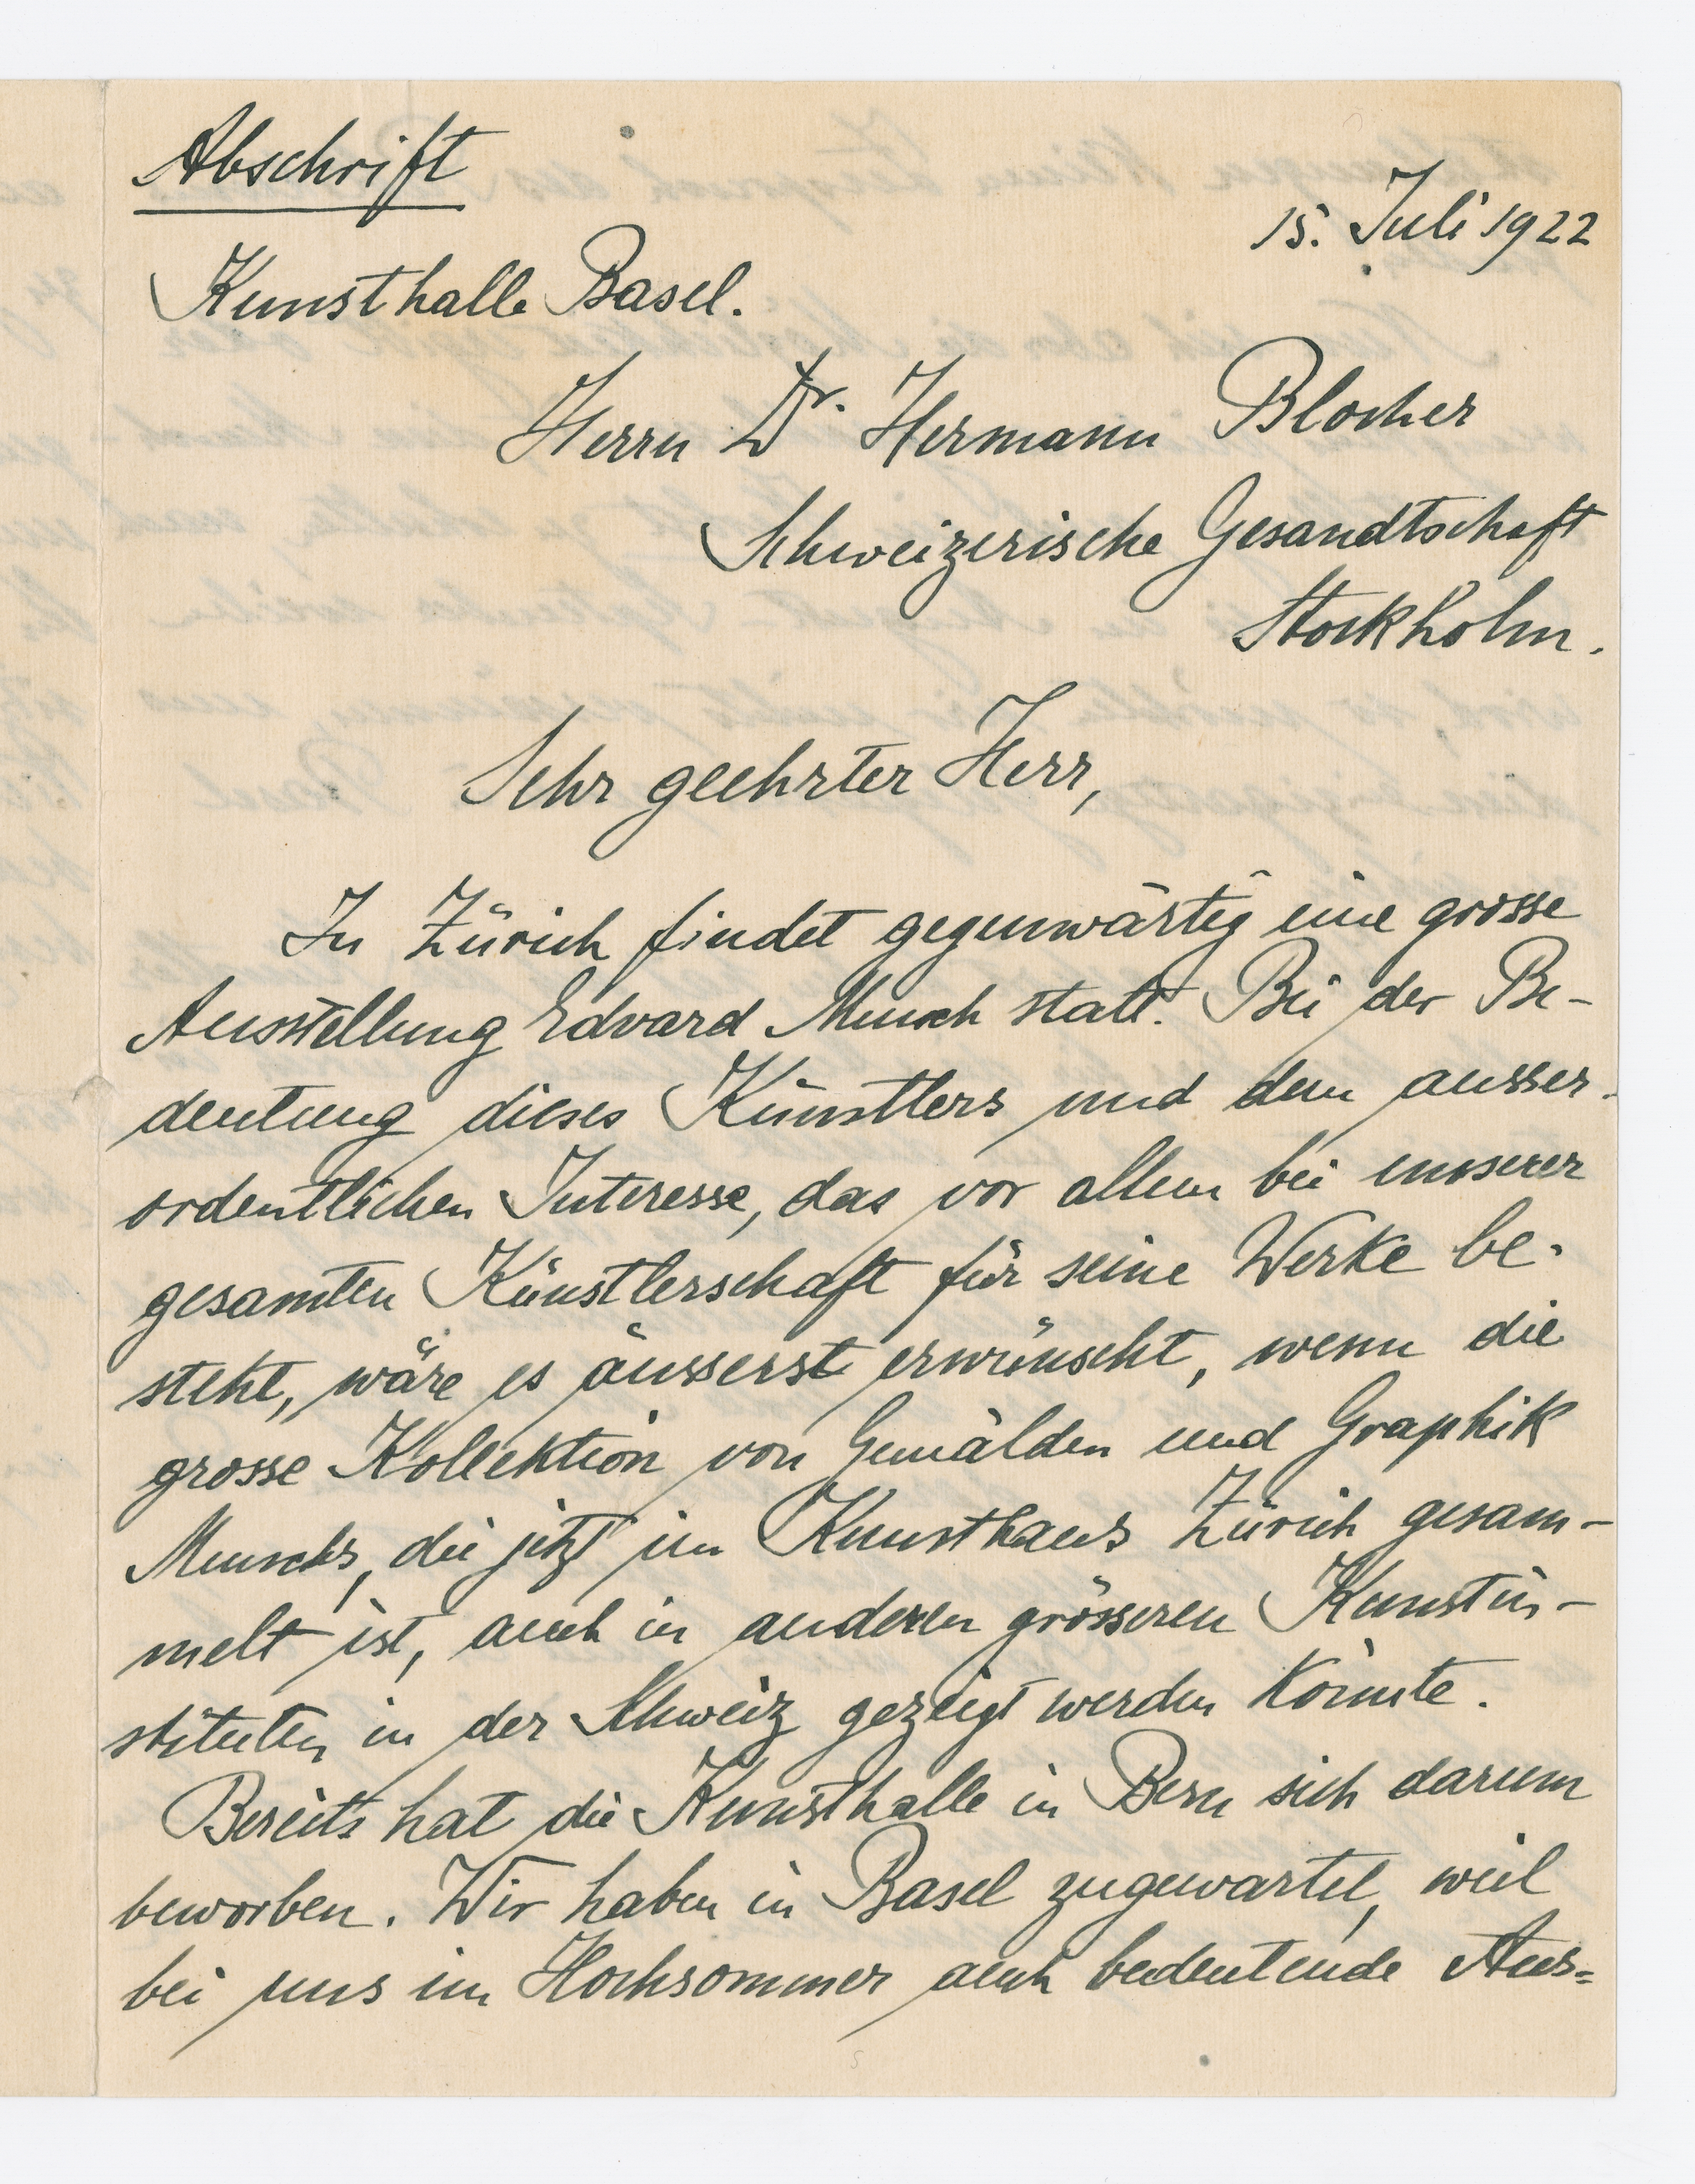 Abschrift
15. Juli 1922
Kunsthalle Basel.
Herrn Dr. Hermann Blocher
Schweizerische Gesandtschaft
Stockholm.
Sehr geehrter Herr,
In Zürich findet gegenwärtig eine grosse
Ausstellung Edvard Munch statt. Bei der Be-
deutung dieses Künstlers und dem ausser-
ordentlichen Interesse, das vor allem bei unserer
gesamten Künstlerschaft für seine Werke be-
steht, wäre es äusserst erwünscht, wenn die
grosse Kollektion von Gemälden und Graphik
Munchs, die jetzt im Kunsthaus Zürich gesam-
melt ist, auch in anderen grösseren Kunstin-
stituten in der Schweiz gezeigt werden könnte.
Bereits hat die Kunsthalle in Bern sich darum
beworben. Wir haben in Basel zugewartet, weil
bei uns im Hochsommer auch bedeutende Aus=